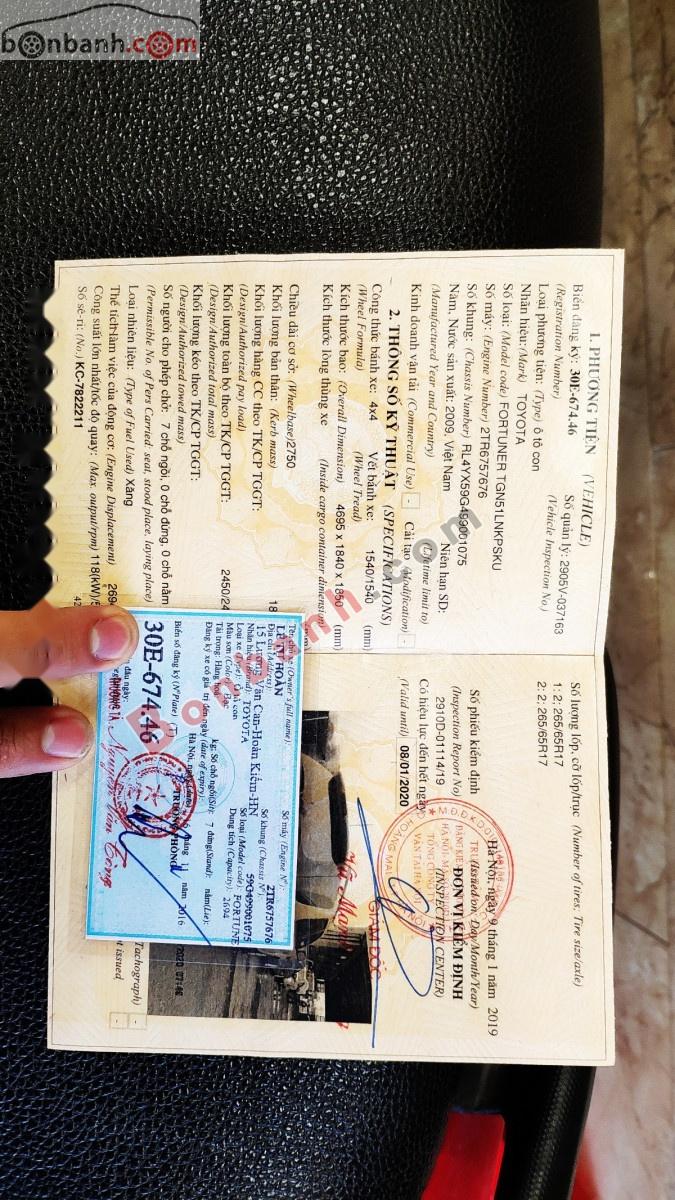 bonbanh.com
1. PHƯƠNG TIỆN (VEHICLE)
Biển đăng ký: 30E-674.46 Số quản lý: 2905V-037163
(Registration Number) (Vehicle Inspection No.)
Loại phương tiện: (Type) ô tô con
Nhãn hiệu: (Mark) TOYOTA
Số loại: (Model code) FORTUNER TGN51LNKPSKU
Số máy: (Engine Number) 2TR6757676
Số khung: (Chassis Number) RL4YX59G499001075
Năm, Nước sản xuất: 2009, Việt Nam Niên hạn SD:
(Manufactured Year and Country) (Lifetime limit to)
Kinh doanh vận tải: (Commercial Use) - Cải tạo: (Modification) -
2. THÔNG SỐ KỸ THUẬT (SPECIFICATIONS)
Công thức bánh xe: 4x4 Vết bánh xe: 1540/1540 (mm)
(Wheel Formula) (Wheel Tread)
Kích thước bao: (Overall Dimension) 4695 x 1840 x 1850 (mm)
Kích thước lòng thùng xe (Inside cargo container dimension) (mm)
Chiều dài cơ sở: (Wheelbase)2750
Khối lượng bản thân: (Kerb mass) 18
Khối lượng hàng CC theo TK/CP TGGT:
(Design/Authorized pay load)
Khối lượng toàn bộ theo TK/CP TGGT: 2450/24
(Design/Authorized total mass)
Khối lượng kéo theo TK/CP TGGT:
(Design/Authorized towed mass)
Số người cho phép chở: 7 chỗ ngồi, 0 chỗ đứng, 0 chỗ nằm
(Permissible No. of Pers Carried: seat, stood place, laying place)
Loại nhiên liệu: (Type of Fuel Used) Xăng
Thể tích làm việc của động cơ: (Engine Displacement) 269
Công suất lớn nhất/tốc độ quay: (Max. output/rpm) 118(kW)/5
Số sê-ri: (No.) KC-7822211
Số lượng lốp, cỡ lốp/trục (Number of tires; Tire size/axle)
1: 2; 265/65R17
2: 2; 265/65R17
Số phiếu kiểm định
(Inspection Report No)
2910D-01114/19
Có hiệu lực đến hết ngày
(Valid until) 08/01/2020
Hà Nội, ngày 9 tháng 1 năm 2019
(Issued on, Day/Month/Year)
ĐƠN VỊ KIỂM ĐỊNH
(INSPECTION CENTER)
GIÁM ĐỐC
Tachograph) -
t issued -
Tên chủ xe (Owner's full name):
LÊ TỰ HOÀN
Địa chỉ (Address):
15 Lương Văn Can-Hoàn Kiếm-HN
Số máy (Engine N°): 2TR6757676
Số khung (Chassis N°): 59G499001075
Nhãn hiệu (Brand): TOYOTA
Số loại (Model code): FORTUNE
Loại xe (Type): Ô tô con
Dung tích (Capacity): 2694
Màu sơn (Color): Bạc
Tải trọng: Hàng hóa kg; Số chỗ ngồi(Sit): 7 đứng(Stand): nằm(Lie):
Đăng ký xe có giá trị đến ngày (date of expiry):
Biển số đăng ký (N°Plate) (T)
30E-674.46
Hà Nội, ngày tháng 11 năm 2016
TRƯỞNG PHÒNG
Bonbanh.com